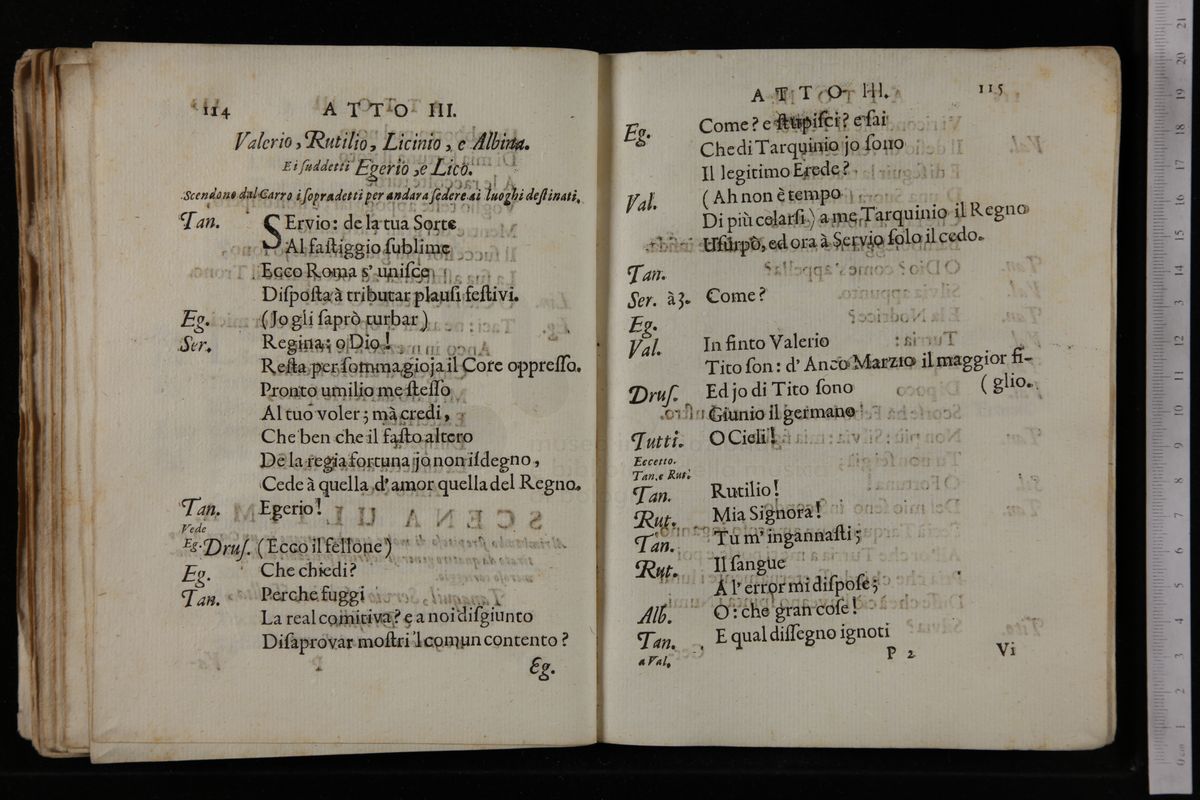 114 ATTO III.
Valerio, Rutilio, Licinio, e Albina.
Ei suddetti Egerio, e Lico.
Scendono dal Carro i sopradetti per andar a sedere ai luoghi destinati.
Tan. SErvio: de la tua Sorte
Al fastiggio sublime
Ecco Roma s' unisce
Disposta à tributar plausi festivi.
Eg. (Jo gli saprò turbar)
Ser. Regina: o Dio!
Resta per somma gioja il Core oppresso.
Pronto umilio me stesso
Al tuo voler; mà credi,
Che ben che il fasto altero
De la regia fortuna jo non isdegno,
Cede à quella d'amor quella del Regno.
Tan. Egerio!
Vede
Eg. Drus. (Ecco il fellone)
Eg. Che chiedi?
Tan. Perche fuggi
La real comitiva? e a noi disgiunto
Disaprovar mostri 'l comun contento?
Eg.
ATTO III. 115
Eg. Come? e stupisci? e sai
Che di Tarquinio jo sono
Il legitimo Erede?
Val. (Ah non è tempo
Di più celarsi) a me Tarquinio il Regno
Usurpò, ed ora à Servio solo il cedo.
Tan.
Ser. à3. Come?
Eg.
Val. In finto Valerio
Tito son: d' Anco Marzio il maggior fi-
Drus. Ed jo di Tito sono (glio.
Giunio il germano
Tutti. O Cieli!
Eccetto.
Tan. e Rut.
Tan. Rutilio!
Rut. Mia Signora!
Tan. Tu m' ingannasti;
Rut. Il sangue
A l' error mi dispose;
Alb. O: che gran cose!
Tan. E qual dissegno ignoti
a Val.
P 2 Vi